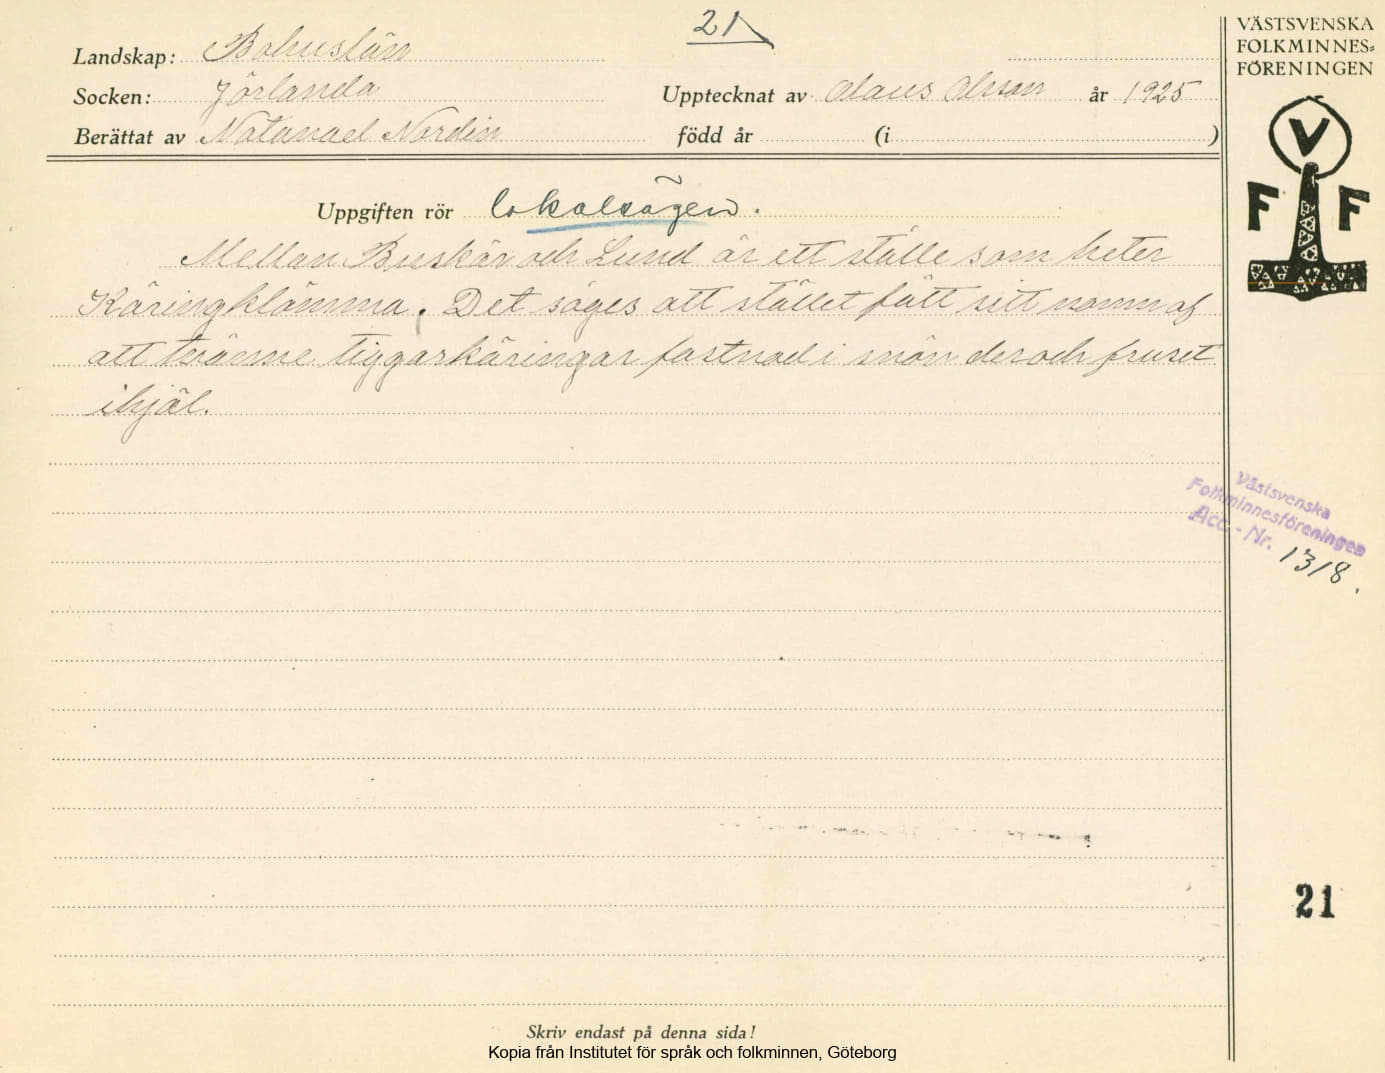 21
Landskap: Bohuslän
Socken: Jörlanda
Upptecknat av Olaus Olsson år 1925
Berättat av Natanael Nordin född år (i )
VÄSTSVENSKA
FOLKMINNES=
FÖRENINGEN
V
F F
Uppgiften rör lokalsägen.
Mellan Buskär och Lund är ett ställe som heter
Käringklämma. Det säges att stället fått sitt namn af
att tvänne tiggarkäringar fastnad i snön der och fruset
ihjäl.
Västsvenska
Folkminnesföreningen
Acc.-Nr. 1318.
21
Skriv endast på denna sida!
Kopia från Institutet för språk och folkminnen, Göteborg